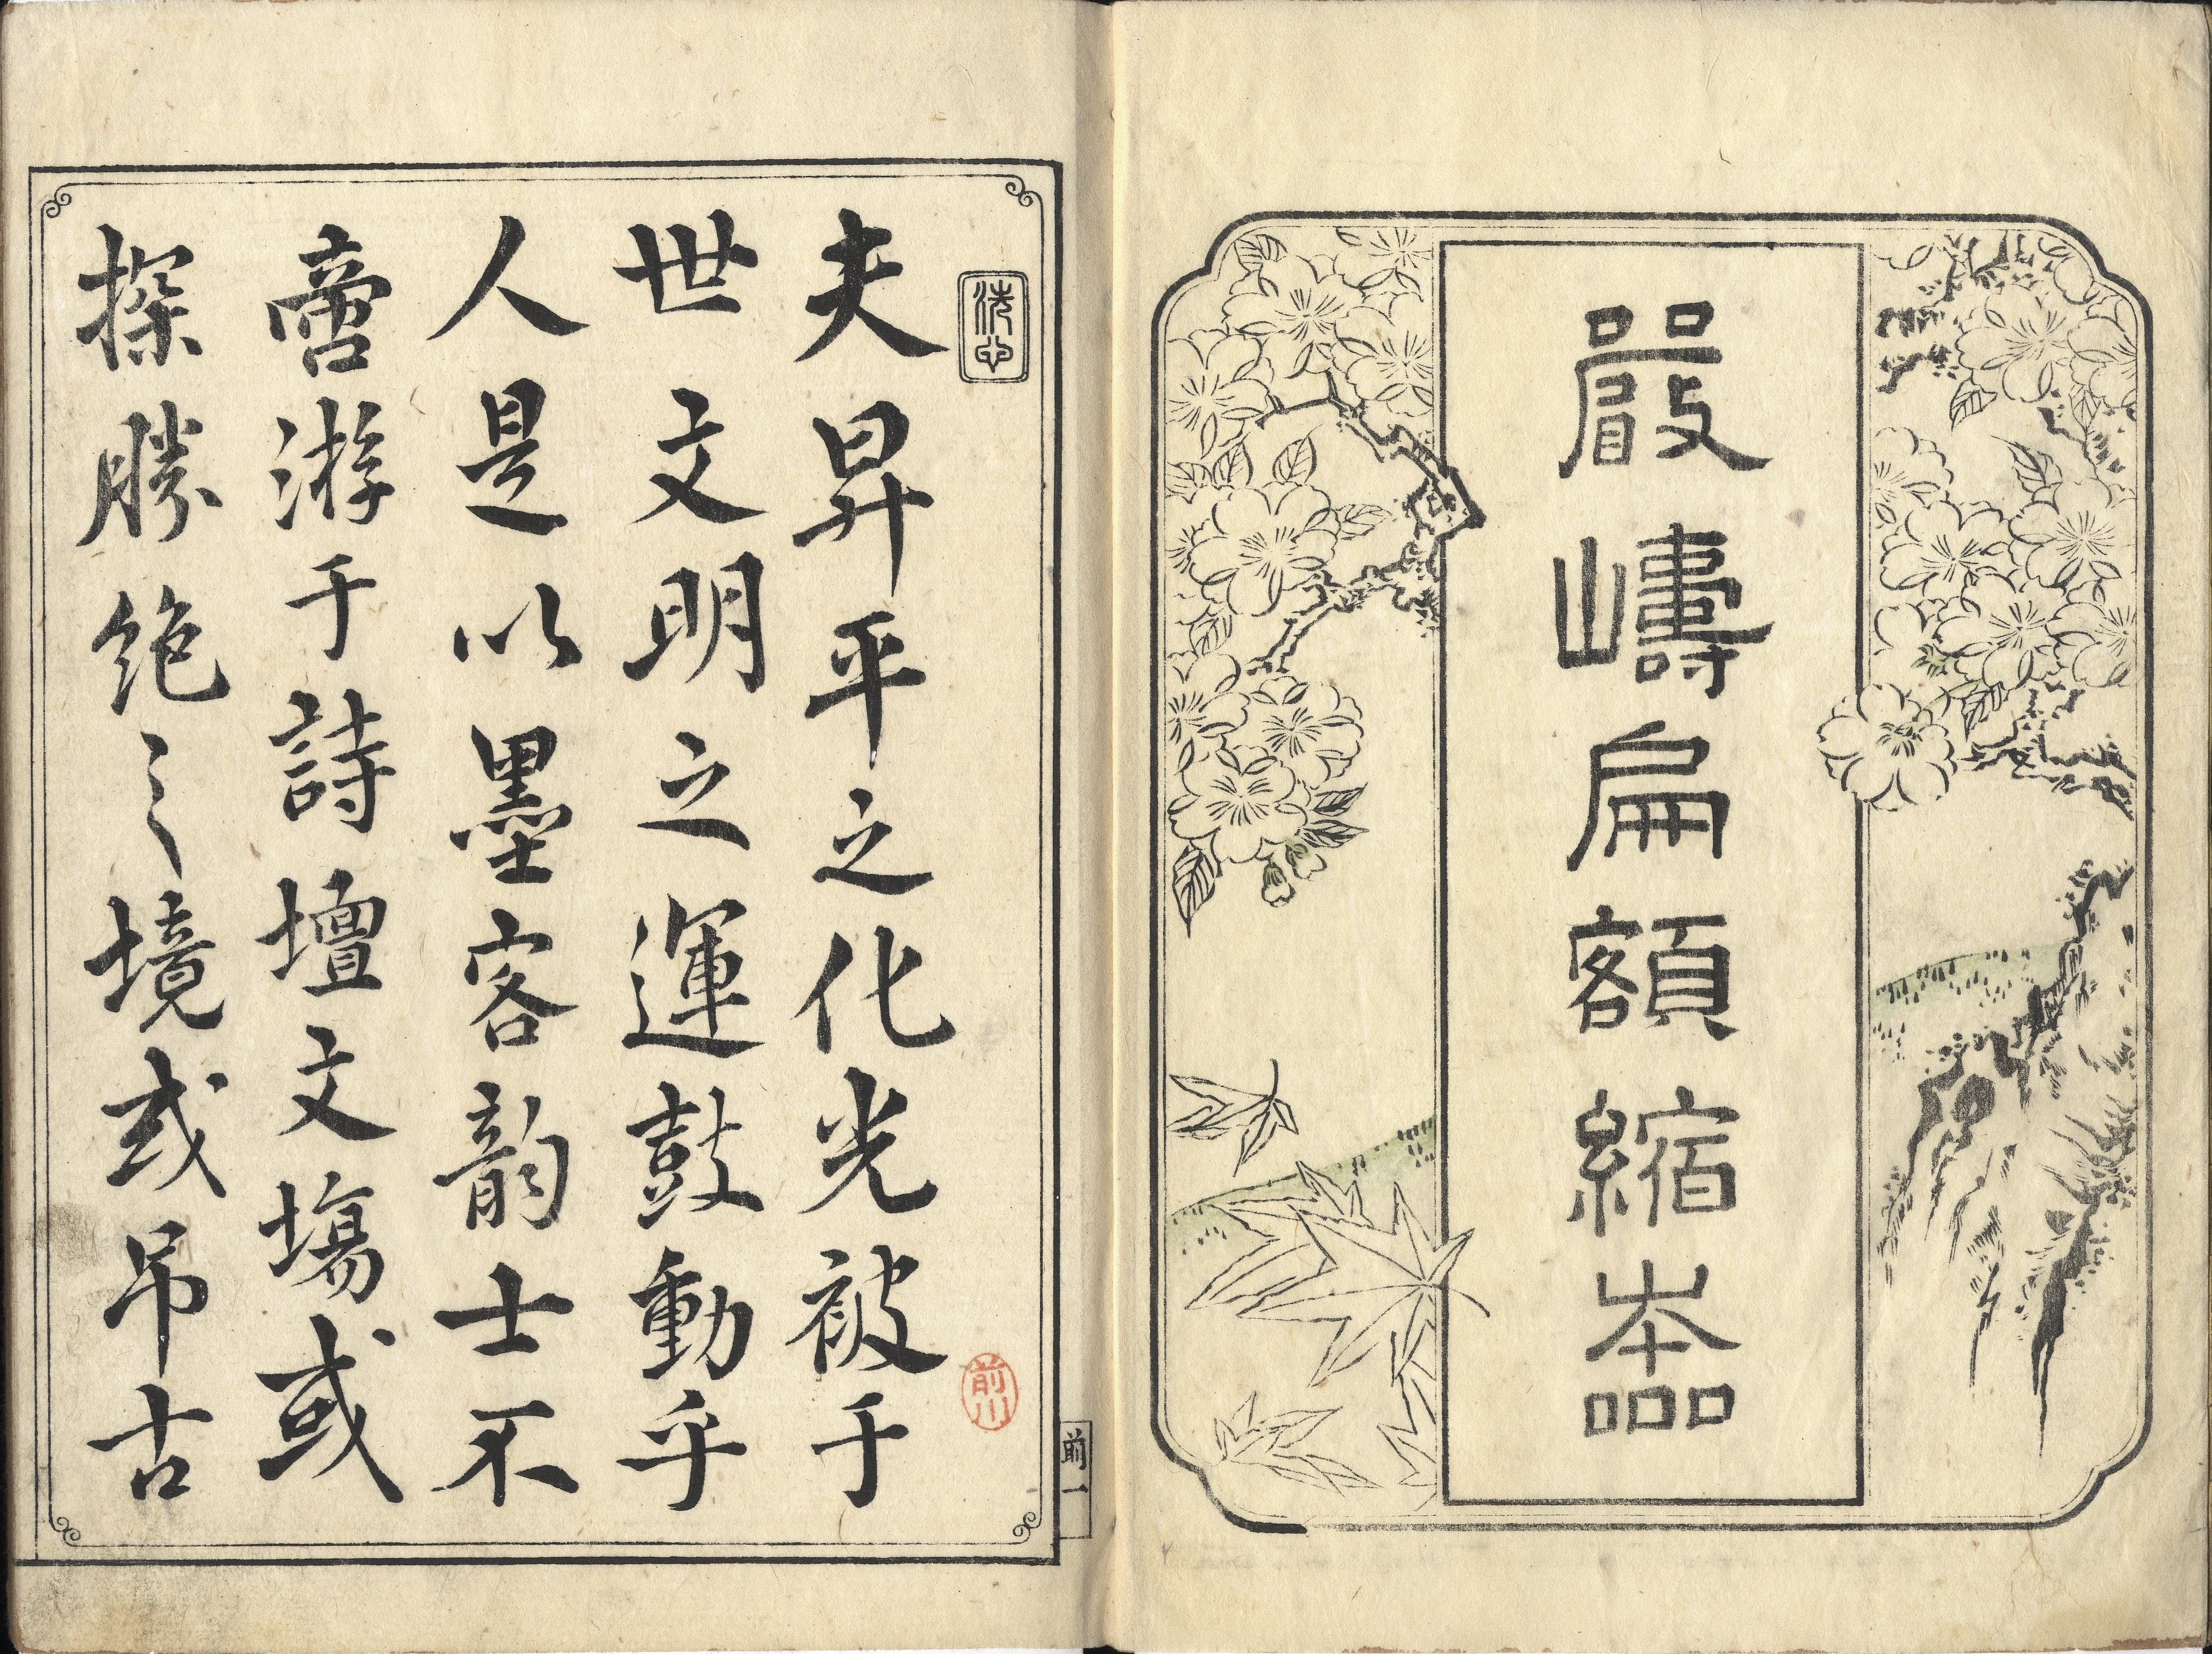 嚴嶹扁額縮本
洗心
夫昇平之化光被于
世文明之運鼓動乎
人是以墨客韵士不
啻游于詩壇文塲或
探勝絶之境或吊古
前川
前一